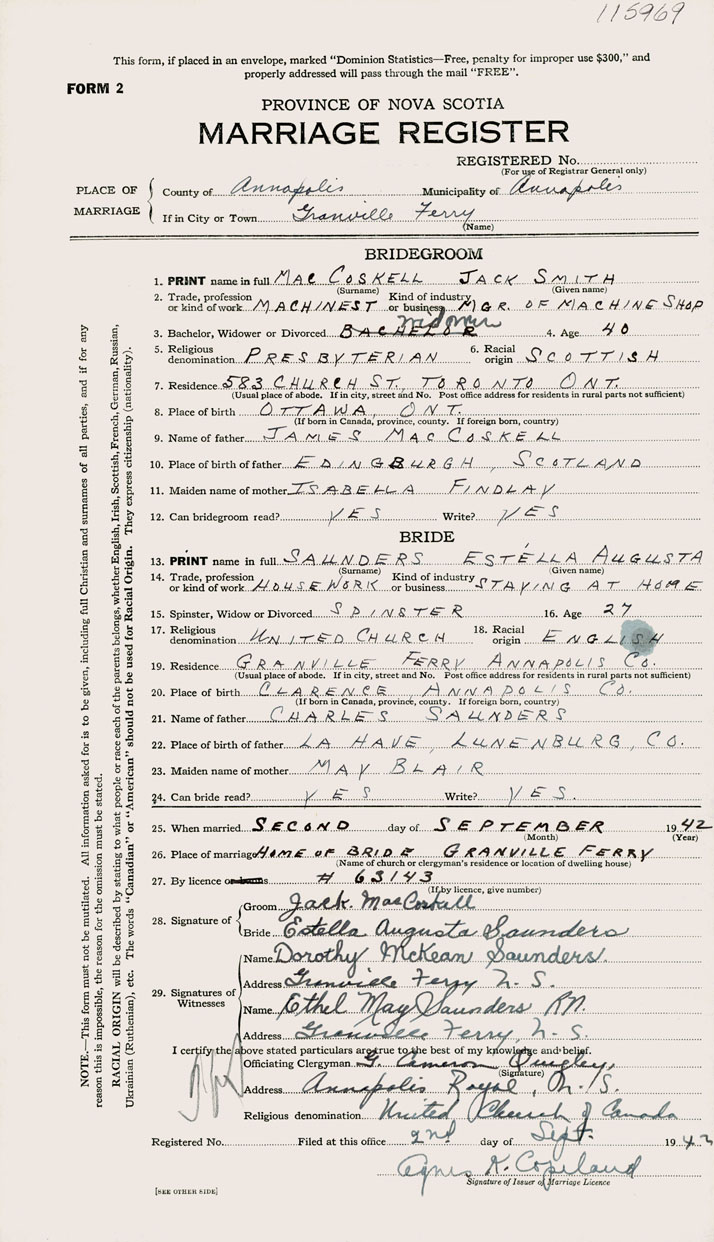 115969
This form, if placed in an envelope, marked "Dominion Statistics—Free, penalty for improper use $300," and
properly addressed will pass through the mail "FREE".
FORM 2
PROVINCE OF NOVA SCOTIA
MARRIAGE REGISTER
REGISTERED No.
(For use of Registrar General only)
PLACE OF MARRIAGE
County of Annapolis Municipality of Annapolis
If in City or Town Granville Ferry
(Name)
BRIDEGROOM
1. PRINT name in full MAC COSKELL JACK SMITH
(Surname) (Given name)
2. Trade, profession or kind of work MACHINEST Kind of industry or business MGR. OF MACHINE SHOP
3. Bachelor, Widower or Divorced BACHELOR widower 4. Age 40
5. Religious denomination PRESBYTERIAN 6. Racial origin SCOTTISH
7. Residence 583 CHURCH ST., TORONTO ONT.
(Usual place of abode. If in city, street and No. Post office address for residents in rural parts not sufficient)
8. Place of birth OTTAWA, ONT.
(If born in Canada, province, county. If foreign born, country)
9. Name of father JAMES MACCOSKELL
10. Place of birth of father EDINGBURGH, SCOTLAND
11. Maiden name of mother ISABELLA FINDLAY
12. Can bridegroom read? YES Write? YES
BRIDE
13. PRINT name in full SAUNDERS ESTELLA AUGUSTA
(Surname) (Given name)
14. Trade, profession or kind of work HOUSEWORK Kind of industry or business STAYING AT HOME
15. Spinster, Widow or Divorced SPINSTER 16. Age 27
17. Religious denomination UNITED CHURCH 18. Racial origin ENGLISH
19. Residence GRANVILLE FERRY ANNAPOLIS CO.
(Usual place of abode. If in city, street and No. Post office address for residents in rural parts not sufficient)
20. Place of birth CLARENCE, ANNAPOLIS CO.
(If born in Canada, province, county. If foreign born, country)
21. Name of father CHARLES SAUNDERS
22. Place of birth of father LA HAVE, LUNENBURG, CO.
23. Maiden name of mother MAY BLAIR
24. Can bride read? YES Write? YES.
25. When married SECOND day of SEPTEMBER 1942
(Month) (Year)
26. Place of marriage HOME OF BRIDE GRANVILLE FERRY
(Name of church or clergyman's residence or location of dwelling house)
27. By licence or banns # 63143
(If by licence, give number)
28. Signature of
Groom Jack. MacCoskell
Bride Estella Augusta Saunders
29. Signatures of Witnesses
Name Dorothy McKean Saunders.
Address Granville Ferry N. S.
Name Ethel May Saunders RN.
Address Granville Ferry, N. S.
I certify the above stated particulars are true to the best of my knowledge and belief.
Officiating Clergyman G. Cameron Quigley,
(Signature)
Address Annapolis Royal, N. S.
Religious denomination United Church of Canada
Registered No. Filed at this office 2nd day of Sept. 1942
Agnes K. Copeland
Signature of Issuer of Marriage Licence
[SEE OTHER SIDE]
NOTE.—This form must not be mutilated. All information asked for is to be given, including full Christian and surnames of all parties, and if for any
reason this is impossible, the reason for the omission must be stated.
RACIAL ORIGIN will be described by stating to what people or race each of the parents belongs, whether English, Irish, Scottish, French, German, Russian,
Ukrainian (Ruthenian), etc. The words "Canadian" or "American" should not be used for Racial Origin. They express citizenship (nationality).